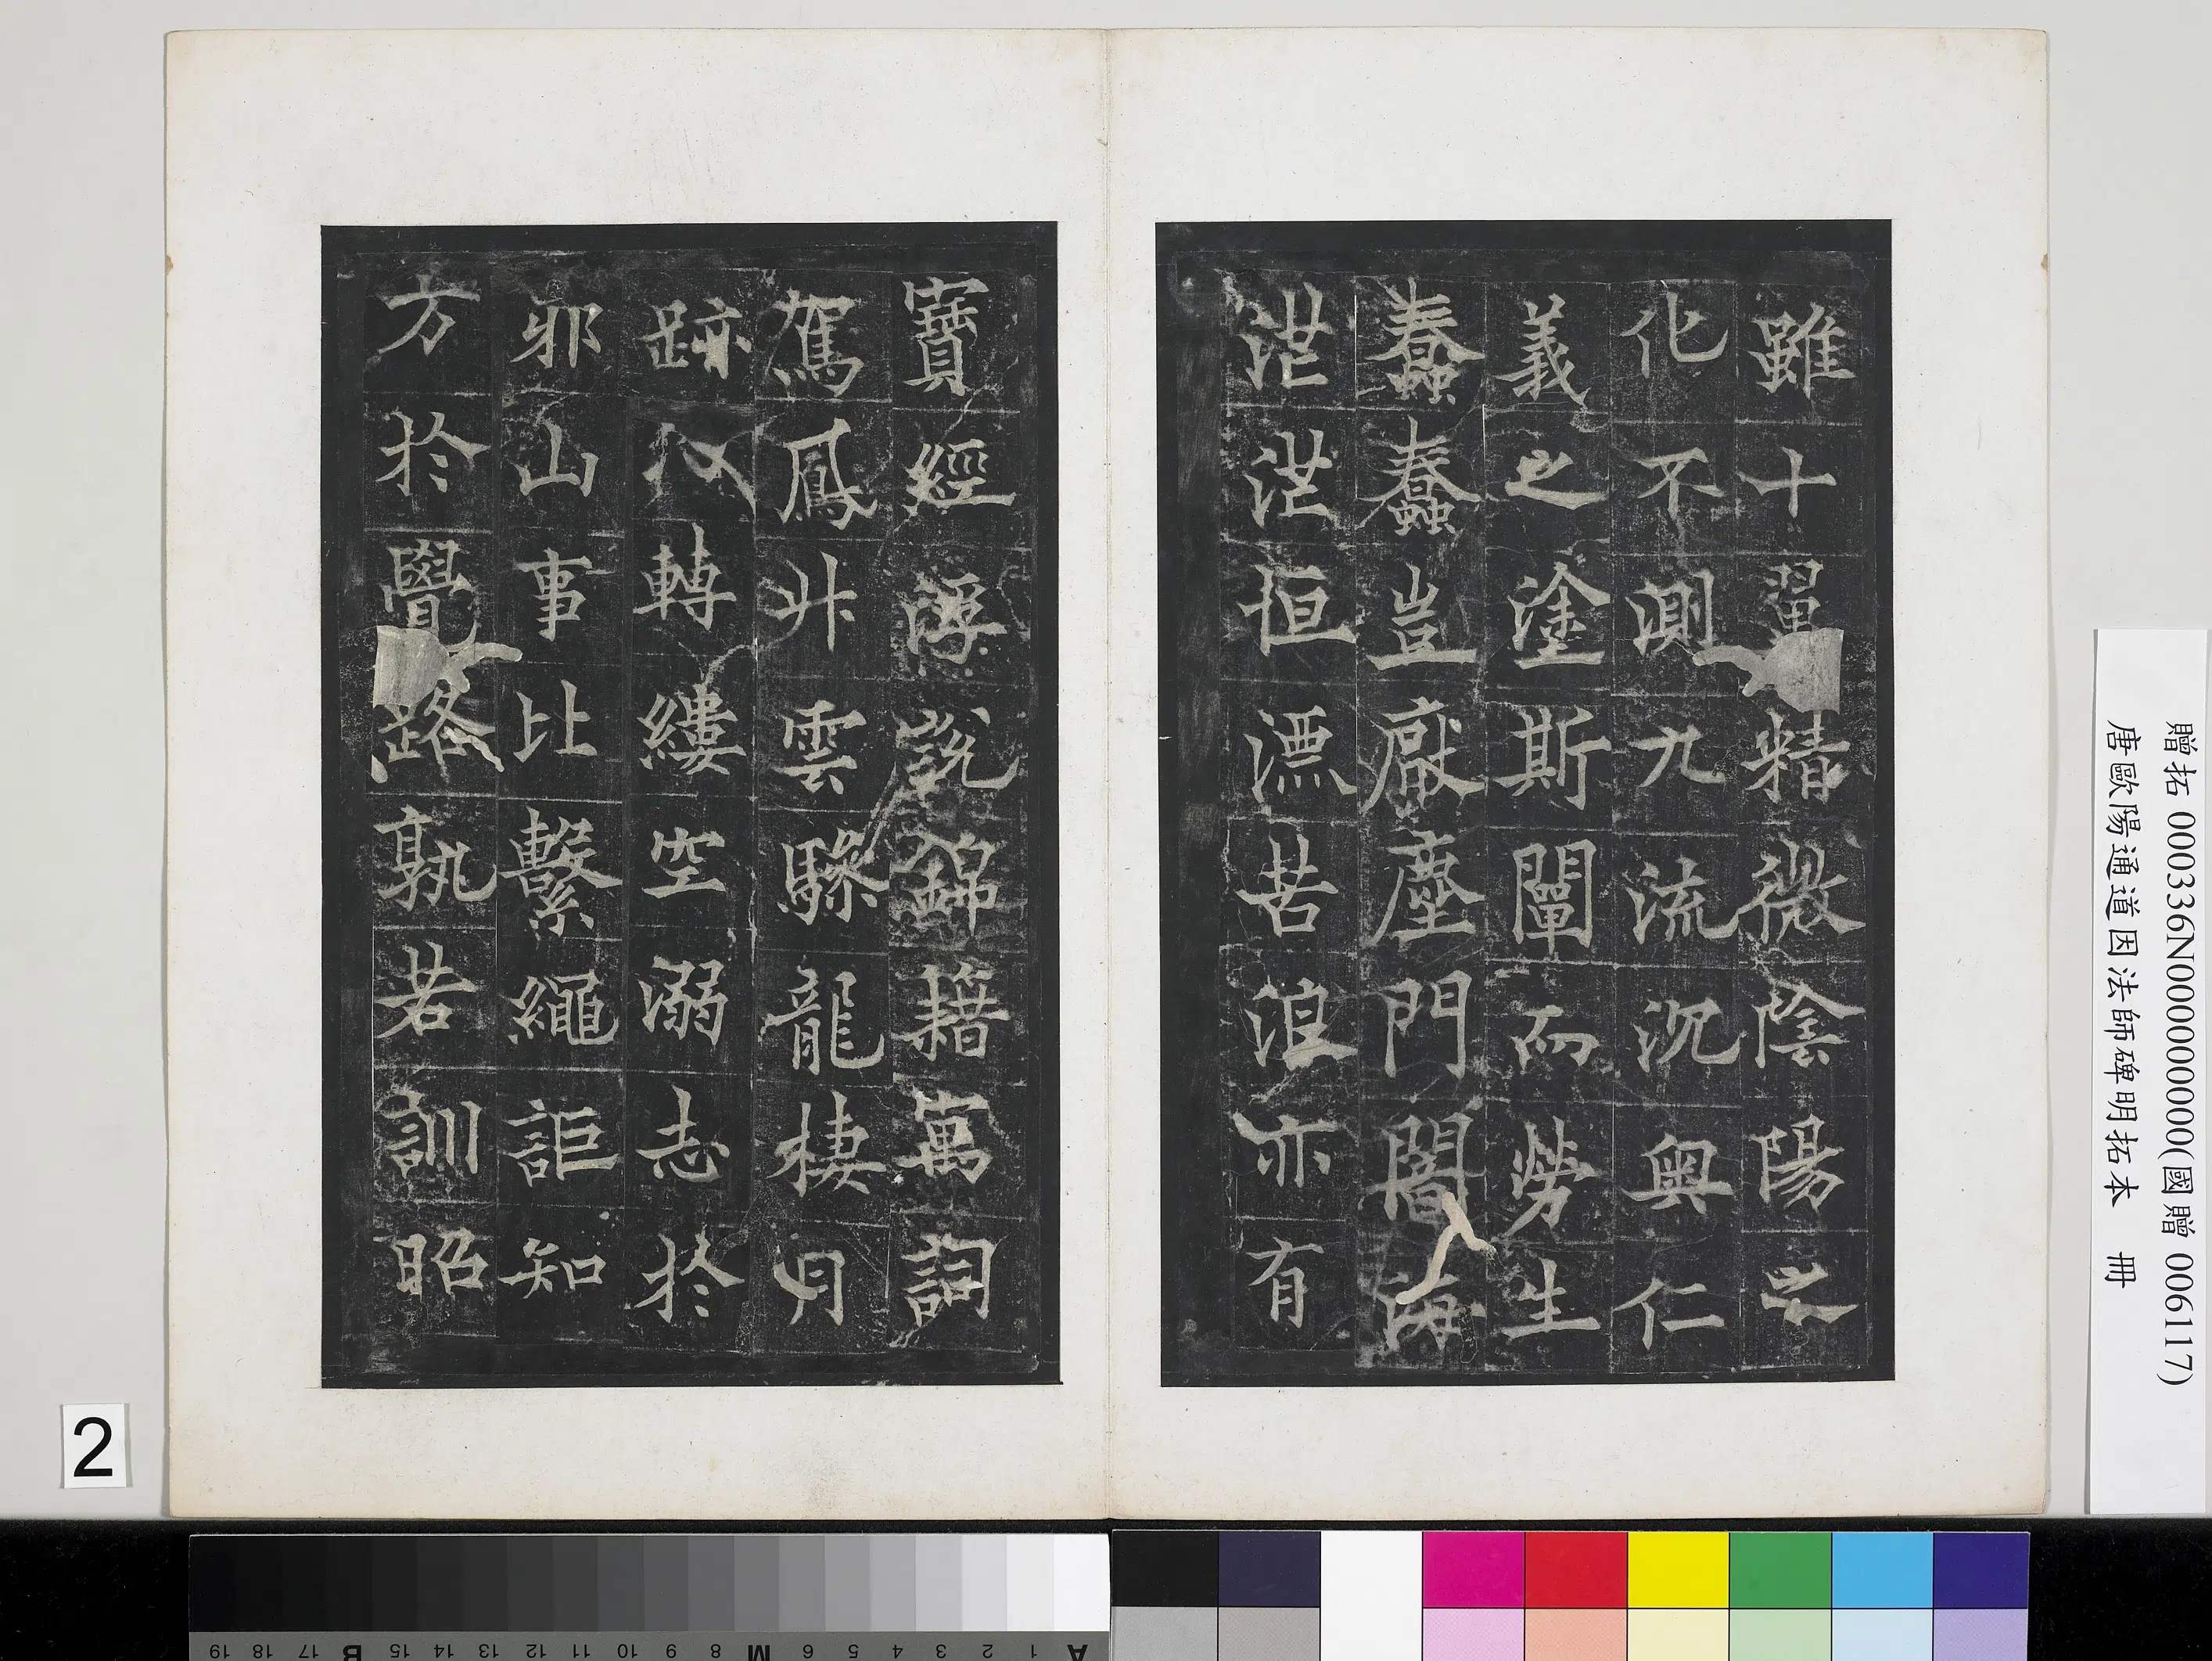 雖十翼精微陰陽之
化不測九流沉奧仁
義之塗斯闡而勞生
蠢蠢豈厭塵門闇海
茫茫恒漂苦浪亦有
寶經浮說錦籍寓詞
駕鳳升雲驂龍棲月
跡轉縷空溺志於
邪山事比繫繩詎知
方於覺路孰若訓昭
贈拓 000336N000000000(國贈 006117)
唐歐陽通道因法師碑明拓本 冊
2
A 1 2 3 4 5 6 M 8 9 10 11 12 13 14 15 B 17 18 19